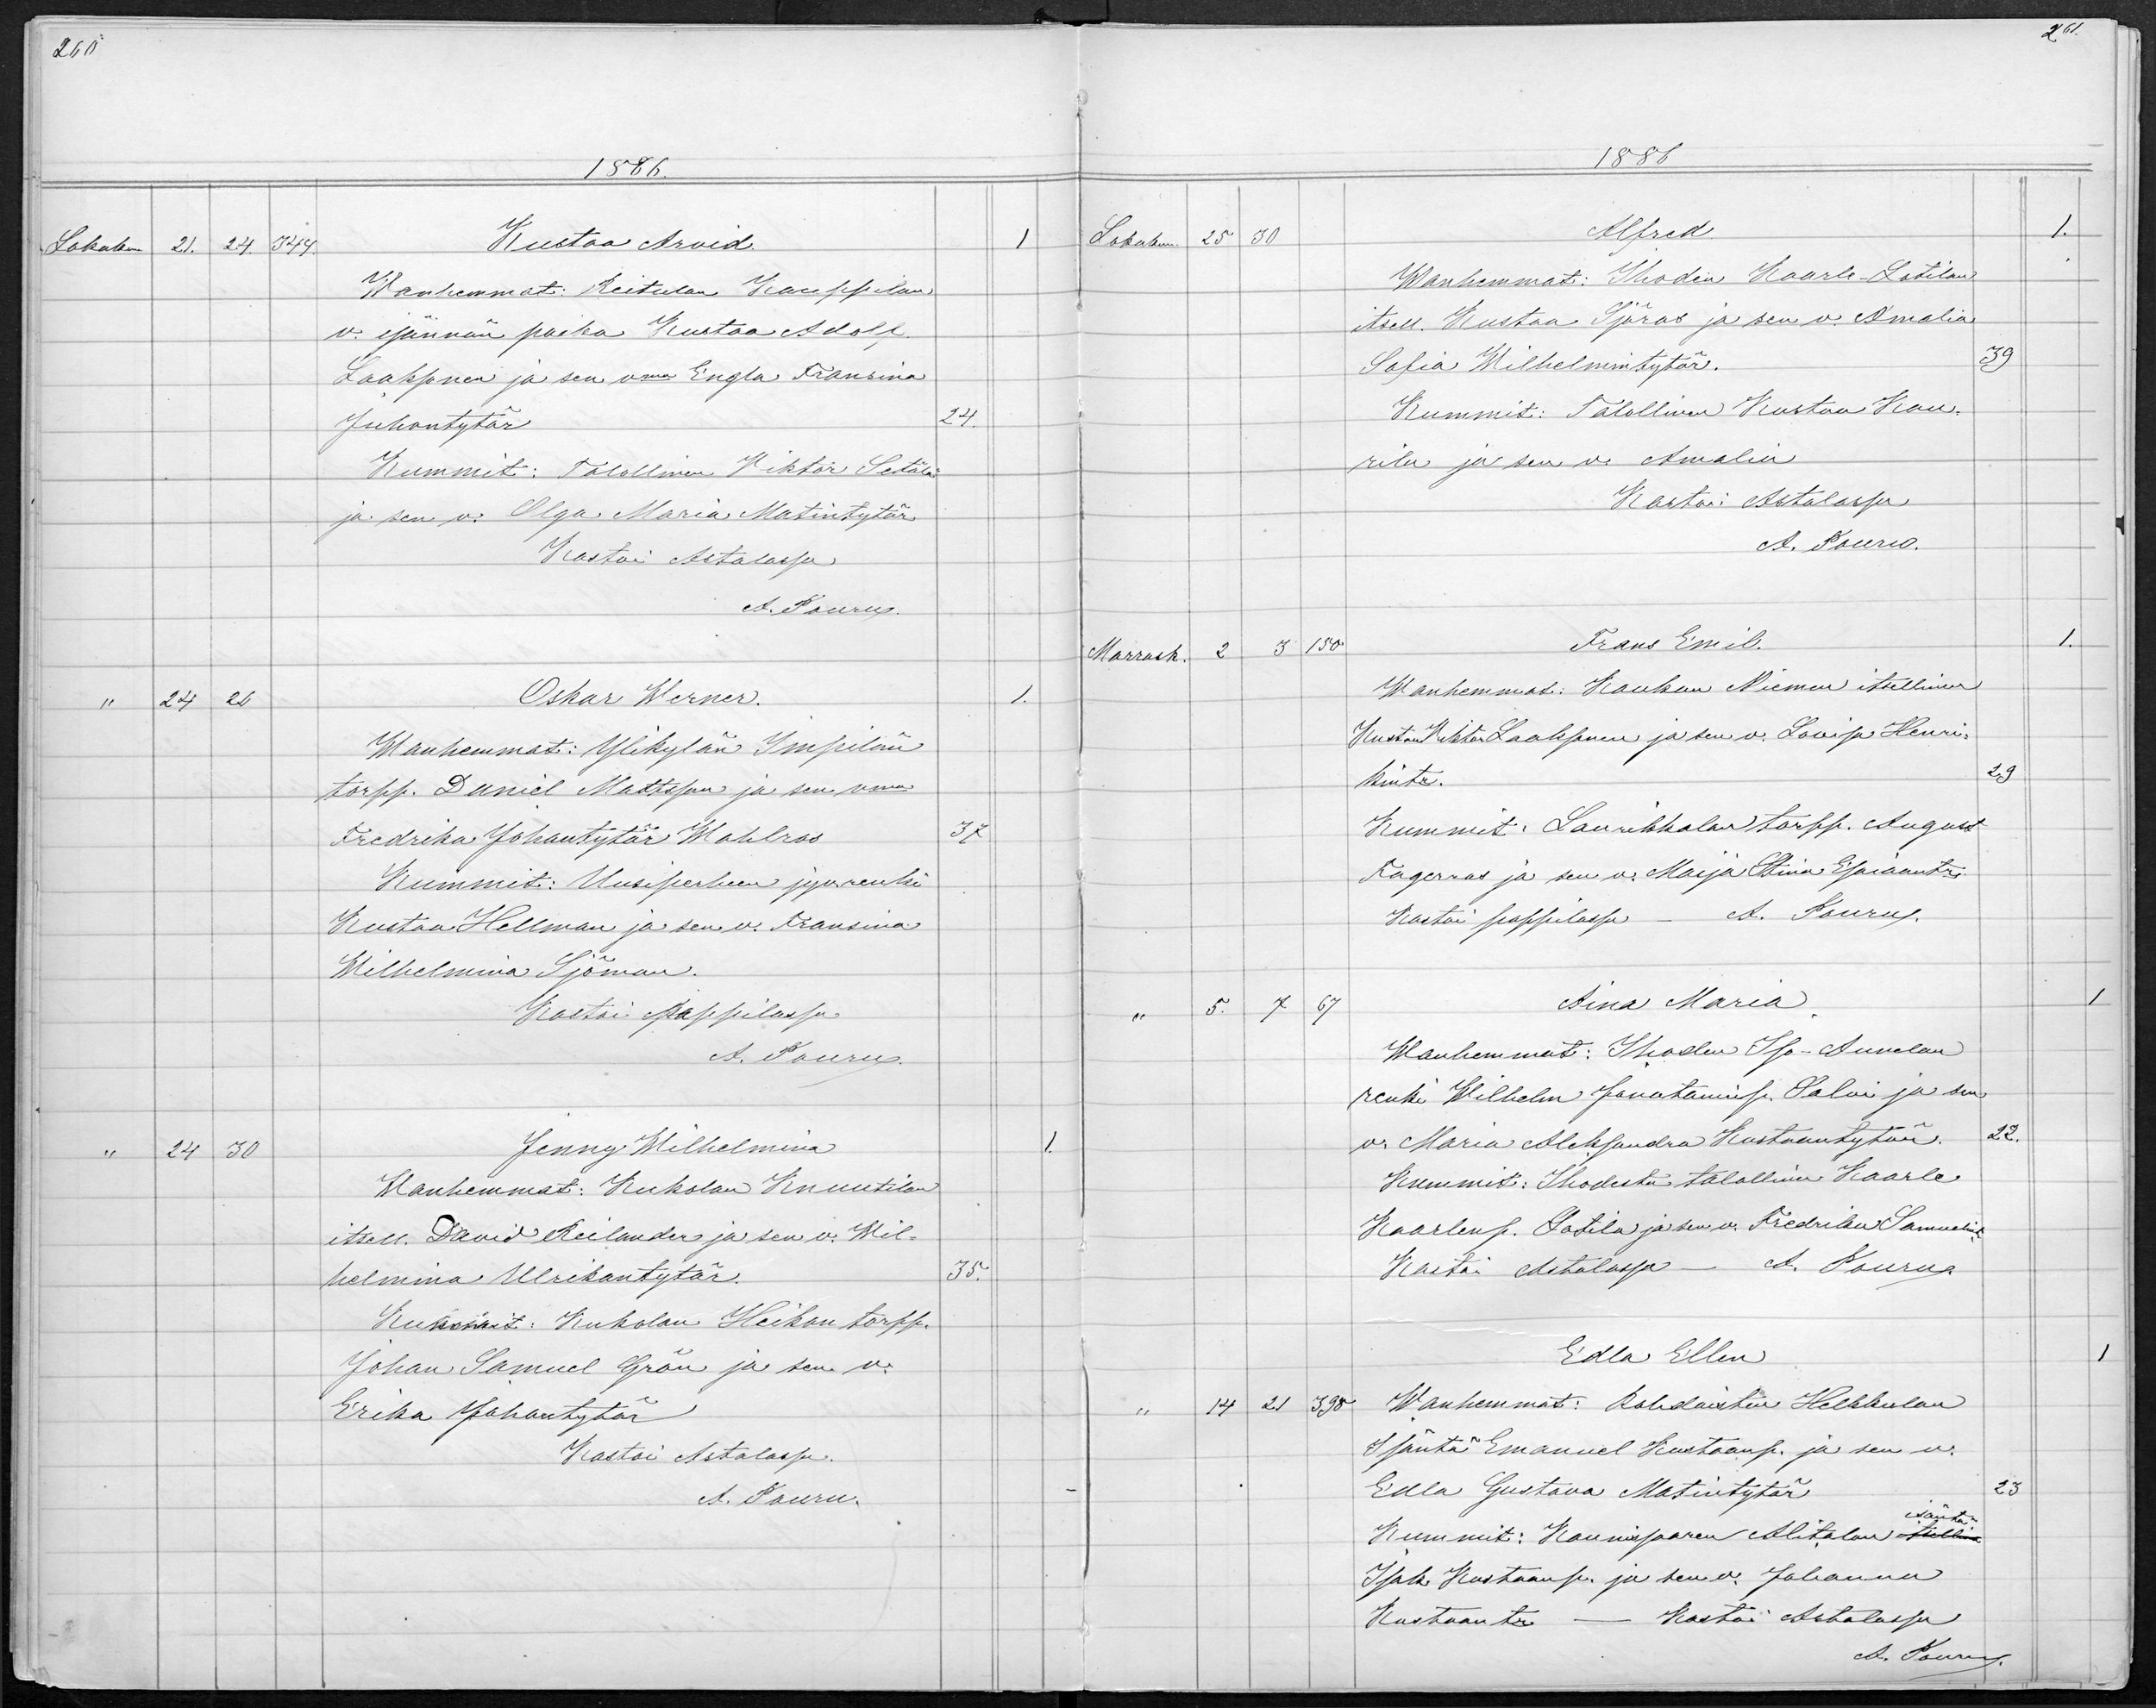 260
1886.
Lokakuu 21. 24. 344. Kustaa Arvid. 1
Wanhemmat: Reitulan Kauppilan
v. isännän poika Kustaa Adolf
Laaksonen ja sen vmo Engla Fransina
Juhontytär 24.
Kummit: Talollinen Viktor Setälä
ja sen v. Olga Maria Matintytär
Kastoi Astalassa
A. Pouru.
" 24 26 Oskar Werner. 1.
Wanhemmat: Ylikylän Impilän
torpp. Daniel Mattsson ja sen vmo
Fredrika Johantytär Wahlroos 37
Kummit: Uusiperheen jyv. renki
Kustaa Hellman ja sen v. Fransina
Wilhelmina Sjöman.
Kastoi Pappilassa
A. Pouru.
" 24 30 Jenny Wilhelmina 1.
Wanhemmat: Kukolan Knuutilan
itsell. David Reilander ja sen v. Wil-
helmina Ulrikantytär. 35.
Kummit: Kukolan Heikan torpp.
Johan Samuel Grön ja sen v.
Erika Johantytär
Kastoi Astalassa.
A. Pouru.
261.
1886
Lokakuu. 25 30 Alfred. 1.
Wanhemmat: Ihoden Kaarle-Sotilan
itsell. Kustaa Sjöros ja sen v. Amalia
Sofia Wilhelmintytär. 39
Kummit: Talollinen Kustaa Kau-
rila ja sen v. Amalia
Kastoi Astalassa
A. Pouru.
Marrask. 2 3 150 Frans Emil. 1.
Wanhemmat: Kaukan Niemen itsellinen
Kustaa Viktor Laaksonen ja sen v. Lovisa Henri-
kintr. 29
Kummit: Laurikkalan torpp. August
Fagerros ja sen v. Maija Stina Esaiaantr.
Kastoi pappilassa — A. Pouru.
" 5. 7 67 Aina Maria. 1
Wanhemmat: Ihoden Iso-Annelan
renki Wilhelm Jonatamins. Salvi ja sen
v. Maria Aleksandra Kustaantytär. 22.
Kummit: Ihodesta talollinen Kaarle
Kaarlenp. Sotila ja sen v. Fredrika Samuelint.
Kastoi Astalassa — A. Pouru.
Edla Ellen 1
" 14 21 398 Wanhemmat: Rohdaisten Helkkulan
Isäntä Emanuel Kustaanp. ja sen v.
Edla Gustava Matintytär 23
isäntä
Kummit: Kaunissaaren Alitalan
Isak Kustaanp. ja sen v. Johanna
Kustaantr — Kastoi Astalassa
A. Pouru.